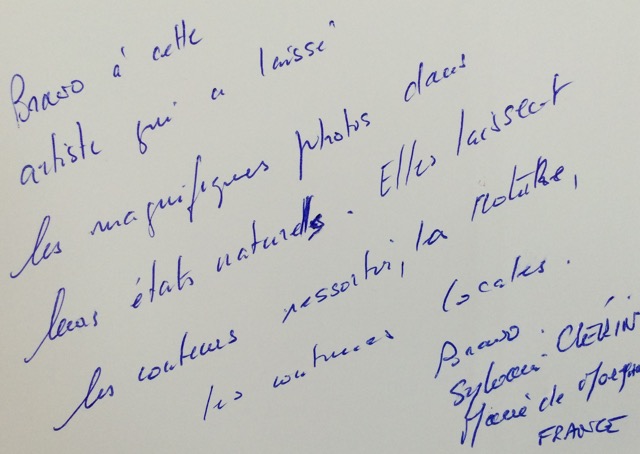 Bravo à cette
artiste qui a laissé
les magnifiques photos dans
leurs états naturels. Elles laissent
les couleurs ressortir, la nature,
les coutumes locales.
Bravo.
Sylvain CLÉRIN
de
FRANCE